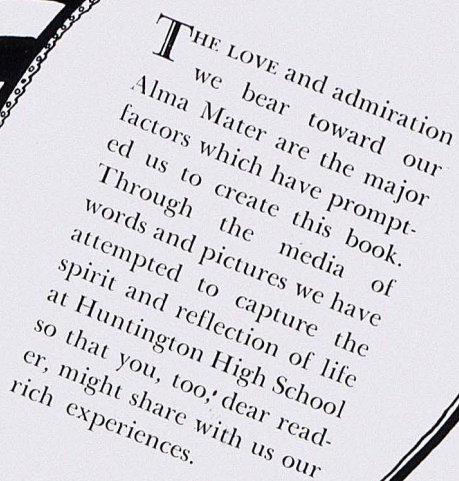 THE LOVE and admiration
we bear toward our
Alma Mater are the major
factors which have prompt-
ed us to create this book.
Through the media of
words and pictures we have
attempted to capture the
spirit and reflection of life
at Huntington High School
so that you, too, dear read-
er, might share with us our
rich experiences.